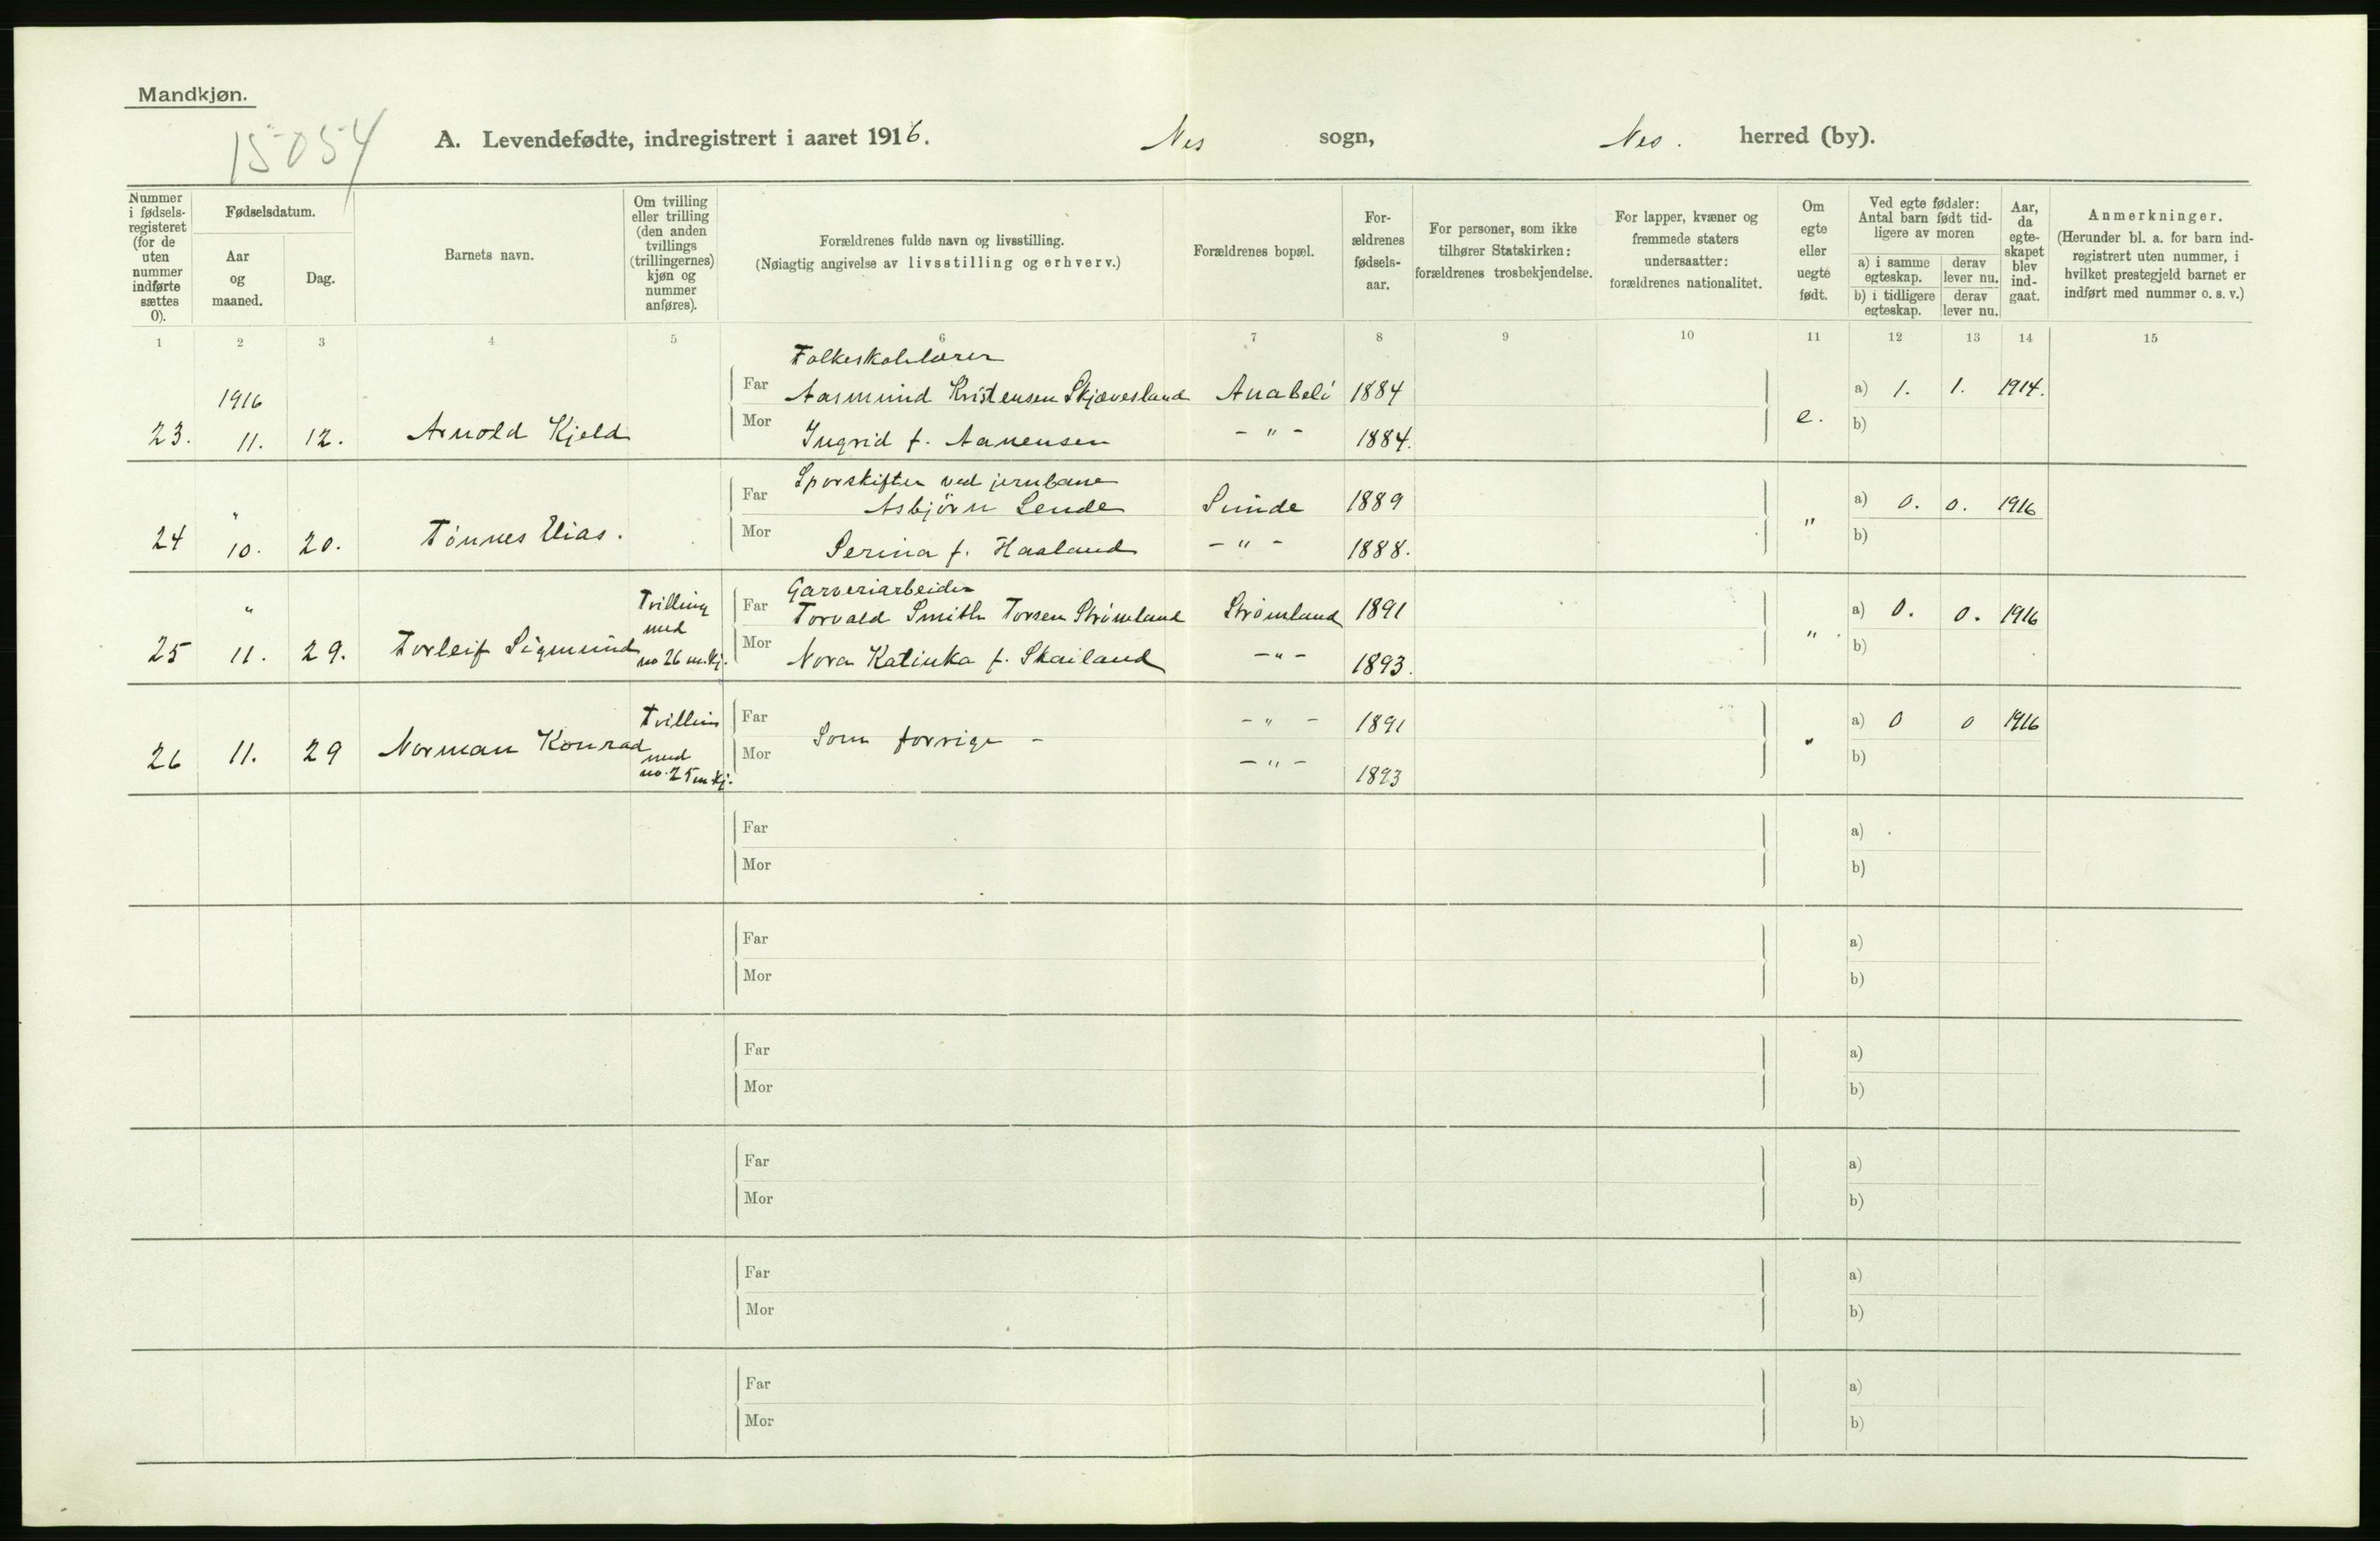 Mandkjøn.
15054
A. Levendefødte, indregistrert i aaret 1916. Nes sogn, Nes. herred (by).
Nummer i fødsels-registeret (for de uten nummer indførte sættes 0).
Fødselsdatum.
Aar og maaned.
Dag.
Barnets navn.
Om tvilling eller trilling (den anden tvillings (trillingernes) kjøn og nummer anføres).
Forældrenes fulde navn og livsstilling.
(Nøiagtig angivelse av livsstilling og erhverv.)
Forældrenes bopæl.
For-ældrenes fødsels-aar.
For personer, som ikke tilhører Statskirken: forældrenes trosbekjendelse.
For lapper, kvæner og fremmede staters undersaatter: forældrenes nationalitet.
Om egte eller uegte født.
Ved egte fødsler: Antal barn født tid-ligere av moren
a) i samme egteskap. derav lever nu.
b) i tidligere egteskap. derav lever nu.
Aar, da egte-skapet blev ind-gaat.
Anmerkninger.
(Herunder bl. a. for barn ind-registrert uten nummer, i hvilket prestegjeld barnet er indført med nummer o. s. v.)
1 2 3 4 5 6 7 8 9 10 11 12 13 14 15
Folkeskolelærer
1916 Far Aasmund Kristensen Skjævesland Anabeli 1884 a) 1. 1. 1914.
23. 11. 12. Arnold Kjeld Mor Ingrid f. Aanensen - " - 1884. e. b)
Sporskifter ved jernbane
" Far Asbjörn Lende Sunde 1889 a) 0. 0. 1916
24 10. 20. Tønnes Elias. Mor Serina f. Haaland - " - 1888. " b)
Garveriarbeider
" Tvilling Far Torvald Smith Torsen Strømland Strømland 1891 a) 0. 0. 1916
med
25 11. 29. Torleif Sigmund no 26 m.kj. Mor Nora Katinka f. Skailand - " - 1893. " b)
Tvilling Far - " - 1891 a) 0 0 1916
Som forrige -
26 11. 29 Norman Konrad med Mor - " - 1893 " b)
no. 25 m kj.
Far a)
Mor b)
Far a)
Mor b)
Far a)
Mor b)
Far a)
Mor b)
Far a)
Mor b)
Far a)
Mor b)